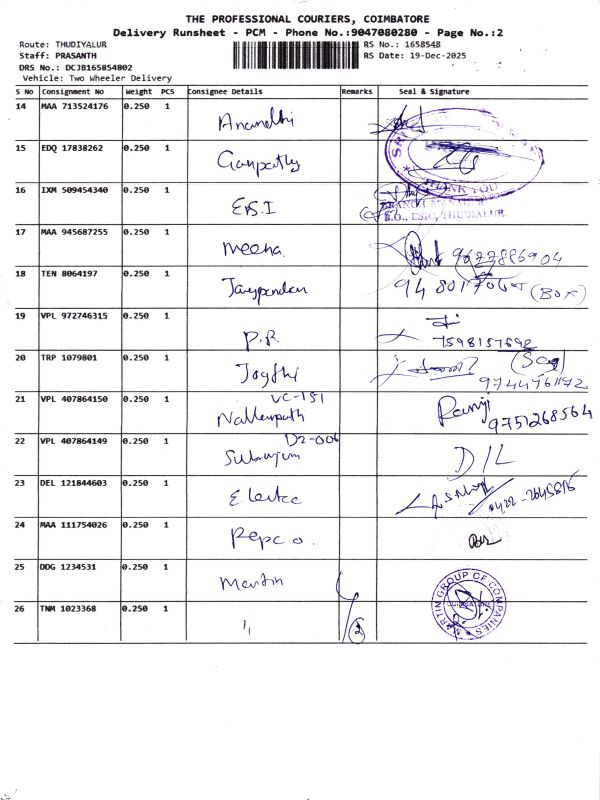 THE PROFESSIONAL COURIERS, COIMBATORE
Delivery Runsheet - PCM - Phone No.:9047080280 - Page No.:2
Route: THUDIYALUR RS No.: 1658548
Staff: PRASANTH RS Date: 19-Dec-2025
DRS No.: DCJB165854802
Vehicle: Two Wheeler Delivery
S No Consignment No Weight PCS Consignee Details Remarks Seal & Signature
14 MAA 713524176 0.250 1 Anandhi
15 EDQ 17838262 0.250 1 Ganpathy
THANK YOU
16 IXM 509454340 0.250 1 E.S.I
B.O., ESIC, THUDIALUR.
17 MAA 945687255 0.250 1 Meena
18 TEN 8064197 0.250 1 (BOX)
19 VPL 972746315 0.250 1 P.R. 7598157692
20 TRP 1079801 0.250 1 Jogthi
21 VPL 407864150 0.250 1 VC-151 Ramji
9751268564
22 VPL 407864149 0.250 1 D2-006 D/L
23 DEL 121844603 0.250 1 0422-2645815
24 MAA 111754026 0.250 1 Repco.
25 DDG 1234531 0.250 1 Martin
MARTIN GROUP OF COMPANIES
26 TNM 1023368 0.250 1 " 2